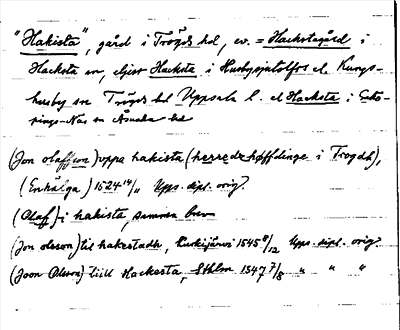 "Hakista", gård i Trögds hd, ev. = Hackstagård i
Hacksta sn, eljest Hacksta i Husbysjutolfts el. Kungs-
husby sn Trögds hd Uppsala l. el Hacksta i Enkö-
pings-Näs sn Åsunda hd
(Jon olaffson) vppa hakista (herredz høffdinge i Trogdh),
(Enhälga) 1524 14/11 Upps. dipl. orig.
(Olaf) i hakista, samma brev
(Jon olsson) til hakestadh, Kurkijärvi 1545 8/12 Upps. dipl. orig.
(Joon Olsson) tiill Hackesta, Sthlm 1547 7/8 " " "